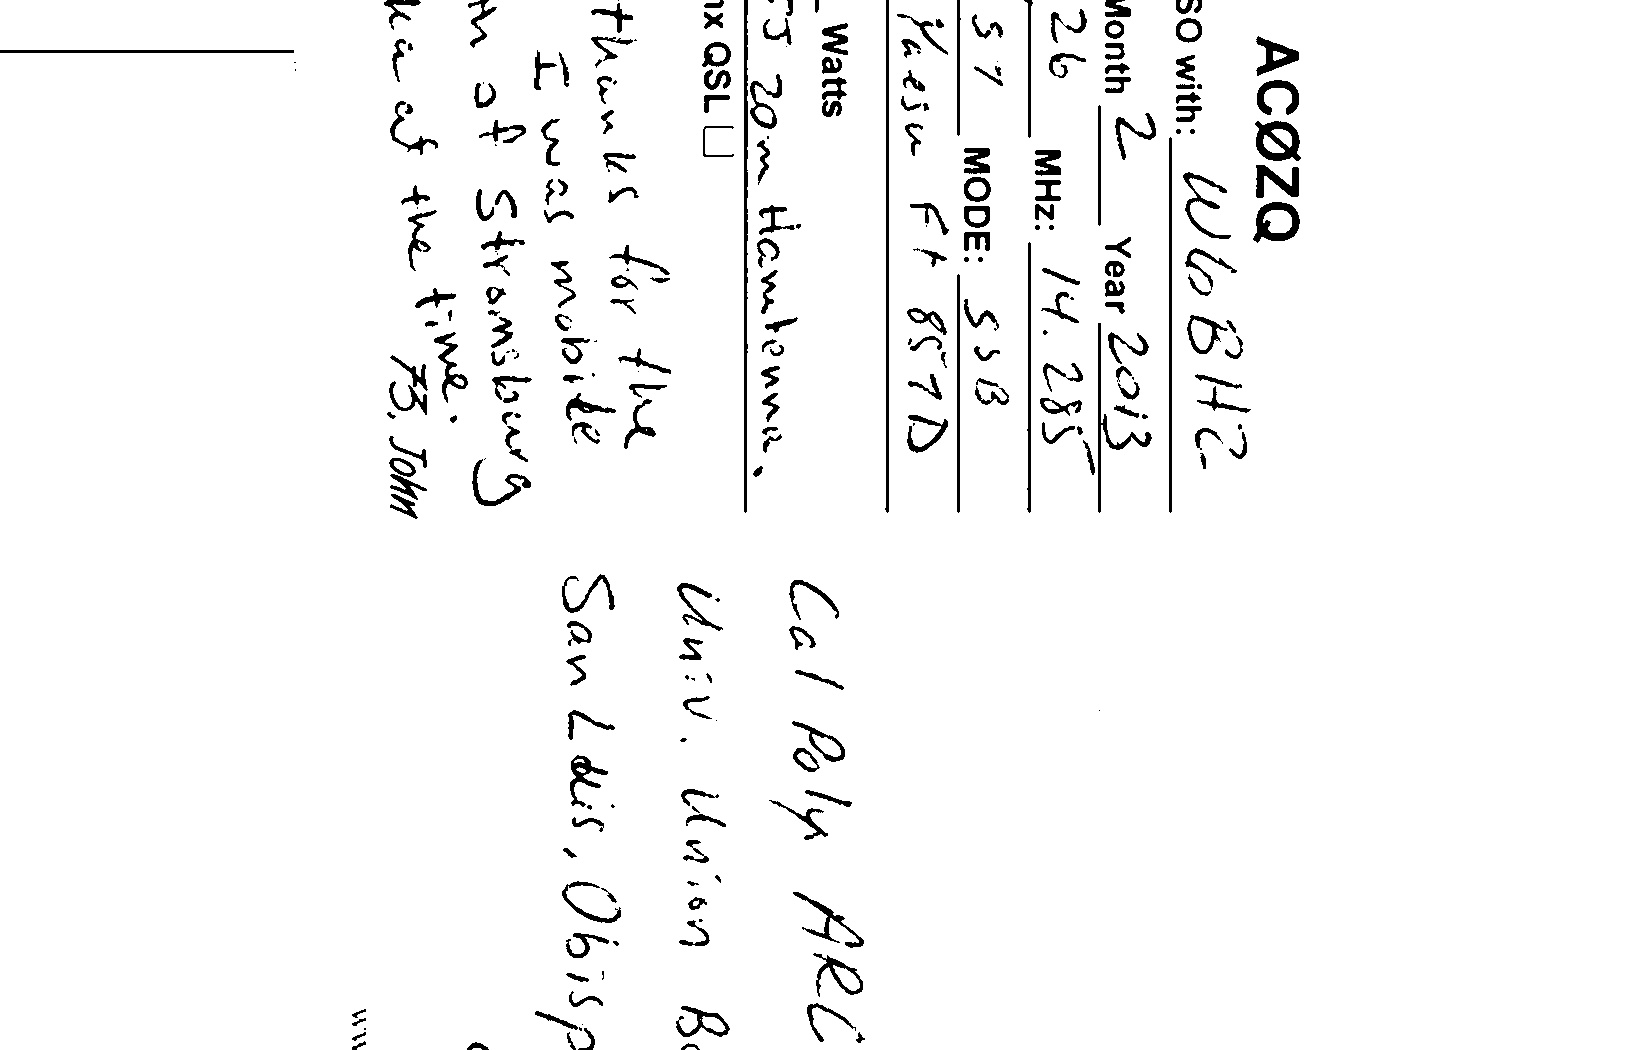 ACØZQ
SO with: W6BHZ
Month 2 Year 2013
26 MHz: 14.285
57 MODE: SSB
Yaesu Ft 857D
Watts
20m Hamtenna.
nx QSL
thanks for the
I was mobile
th of Stromsburg
ka at the time.
73, John
Cal Poly ARC
Univ. Union B
San Luis, Obisp